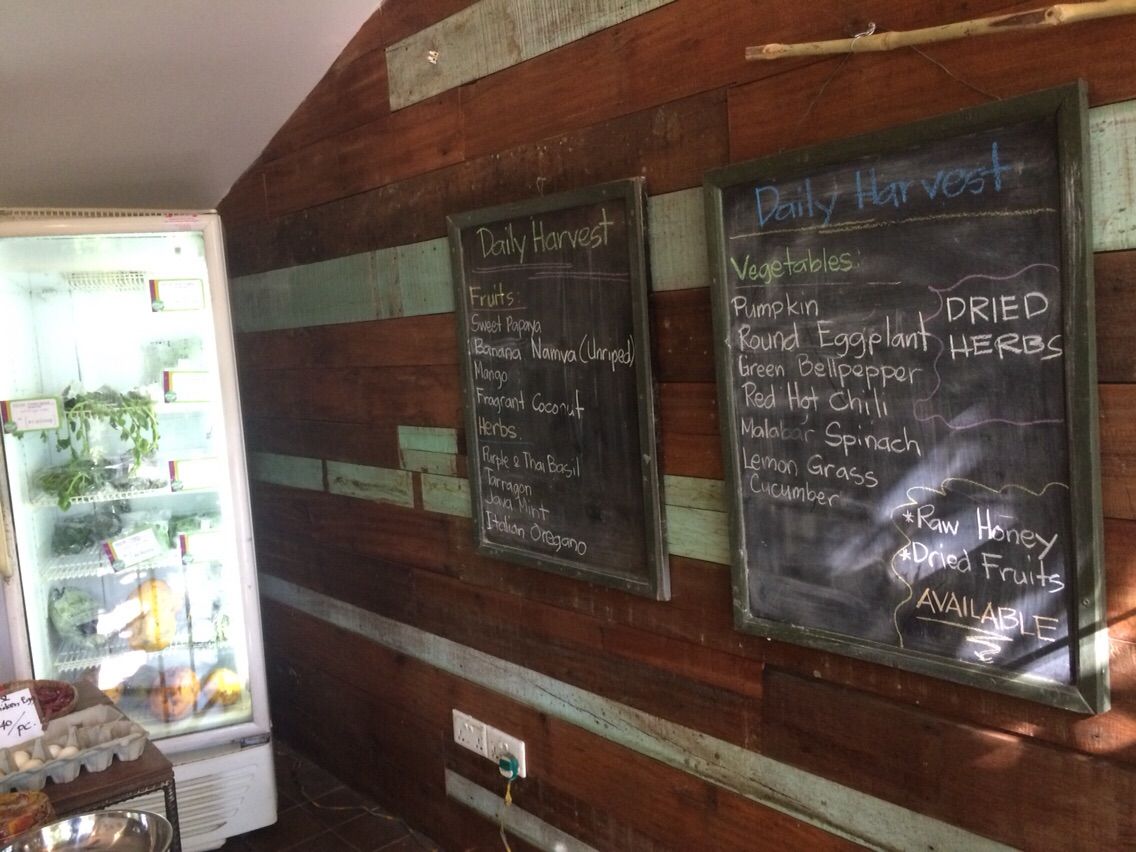 Daily Harvest
Fruits:
Sweet Papaya
Banana Namva (Unriped)
Mango
Fragrant Coconut
Herbs:
Purple & Thai Basil
Tarragon
Java Mint
Italian Oregano
Daily Harvest
Vegetables:
Pumpkin
Round Eggplant
Green Bellpepper
Red Hot Chili
Malabar Spinach
Lemon Grass
Cucumber
DRIED
HERBS
*Raw Honey
*Dried Fruits
AVAILABLE
/PC.